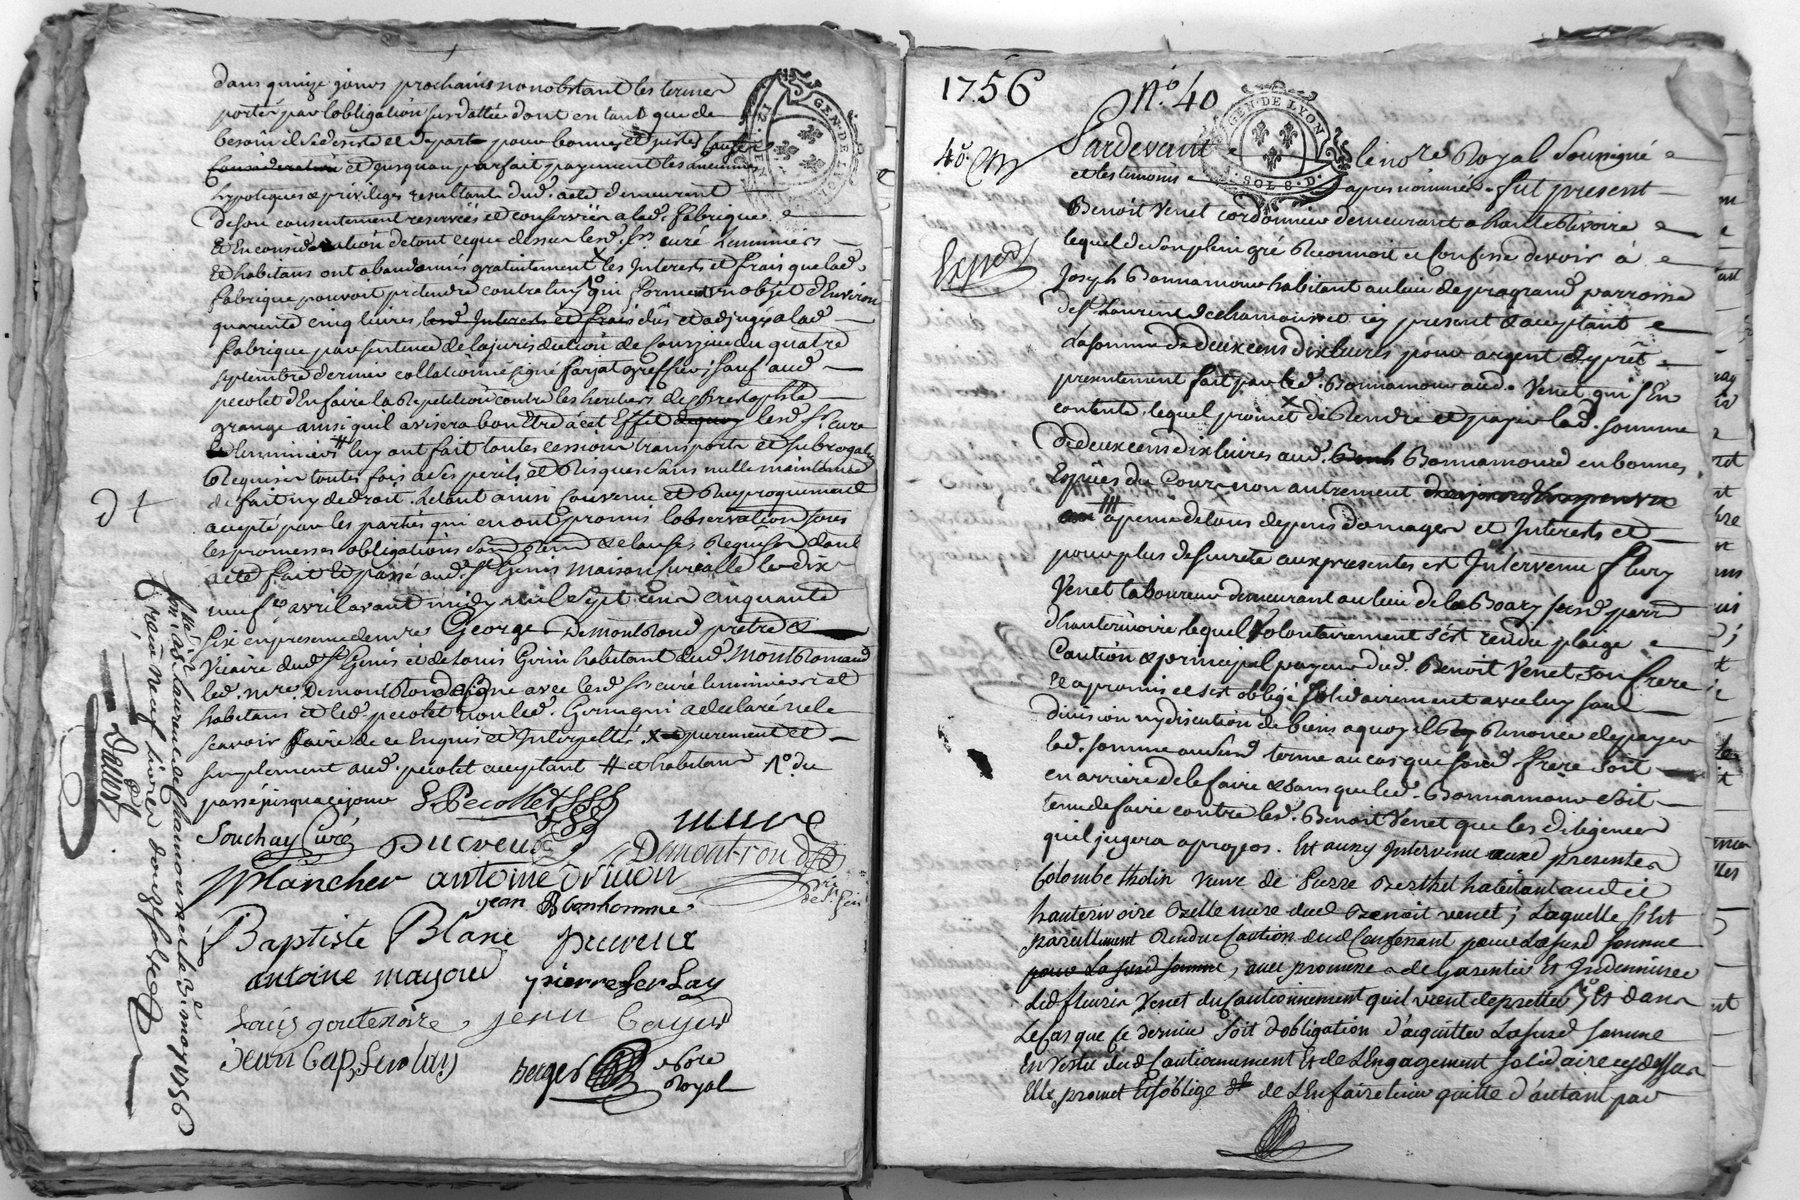 dans quinze jours prochains nonobstant les termes
portés par lobligation susdattée dont en tant que de
besoin il se desiste et depart pour bonnes et justes causes
Considerations et jusquau parfait payement les anciennes
hypoteques & privileges resultants dud. acte demeurent
de son consentement reservées et conservées a lad. fabrique
Et En consideration de tout ce que dessus lesd. srs. curé Luminiers
Et habitans ont abandonnés gratuitement les Interests et frais que lad.
fabrique pouvoit pretendre contre luy qui forment un objet d'Environ
quarente cinq livres, lesd. Interests et frais dus et adjugés a lad.
fabrique par sentence de la jurisdiction de du quatre
septembre dernier collationné signé farjat greffier; sauf aud.
pecolet d'En faire la Repetition contre les heritiers de
grange ainsi quil avisera bon Etre a cet Effet lesd. Sr. Curé
luminiers luy ont fait toutes cessions transports et subrogations
Requises toutes fois a ses perils et Risques sans nulle maintenue
de fait ny de droit. Le tout ainsi convenu et Reciproquement
accepté par les parties qui en ont promis lobservation sous
les promesses obligations & clauses Requises dont
acte fait Et passé aud. St. Genis maison curialle le dix
neuf avril avant midy mil sept cens cinquante
six en presence de mre George Demontrond prêtre &
Vicaire dud. St. Genis et de Louis Grin habitant dud. Montromand
led. mre. Demontrond a signé avec lesd. srs curé luminiers et
habitans et led. pecolet non led. Grin qui a declaré ne le
scavoir faire de ce Enquis et Interpellé. x purement et
simplement aud. pecolet acceptant # et habitans no. du
passé jusqua ce jour
E Pecollet
Souchay Curé
Ducreux
Demontrond
J Plancher
antoine
jean Bonhomme
Baptiste Blanc
Ducreux
antoine mayoud
pierre Ferlay
Louis goutenoire
jean Gayet
jean Bap Ferlay
berger
notre
Royal
d +
Cté a St. Laurent de Chamousset le 3e. may 1756
Reçu neuf livres douze sols
1756
No. 40
40. Con
Exped
GEN. DE LYON
GEN. DE LYON
SOL 8 D.
Pardevant le nore Royal Soussigné
et les temoins apres nommés fut present
Benoit Venet cordonnier demeurant a hauterivoire
lequel de son plein gré Reconnoit et Confesse devoir à
Joseph Bonnamour habitant au lieu de pragrand parroisse
de St. Laurent de chamousset icy present & acceptant
La somme de deux cens dix livres pour argent de prêt
presentement fait par led. Bonnamour aud. Venet qui s'En
contente, lequel promet de Rendre et payer lad. somme
de deux cens dix livres aud. Bonnamour en bonnes
Especes du Cour non autrement
a peine de tous depens domages et Interests et
pour plus de sureté aux presentes est Intervenu fleury
Venet laboureur demeurant au lieu de la Boary susd. parr
d'hauterivoire, lequel volontairement s'est rendu pleige
Caution & principal payeur dud. Benoit Venet son frere
et a promis et s'est obligé solidairement avec luy sans
division ny discution de biens a quoy il Renonce de payer
lad. somme au susd. terme au cas que sond. frere soit
en arriere de le faire & sans que led. Bonnamour soit
tenu de faire contre led. Benoit Venet que les diligences
quil jugera a propos. Est aussy Intervenue auxd presentes
Colombe tholin veuve de Pierre Berthet habitant aud lieu
hauterivoire Belle mere dud Benoit venet; Laquelle s'Est
pareillement Rendue Caution dud Confessant pour La susd somme
pour La susd somme, avec promesse de Garentir Et Indemniser
Led fleury Venet du Cautionnement quil vient de pretter Et dans
Le Cas que ce dernier soit d'obligation d'acquitter La susd somme
En Vertu dud Cautionnement Et de L'Engagement solidaire cy dessus
Elle promet Et s'oblige de L'En faire tenir quitte d'autant par